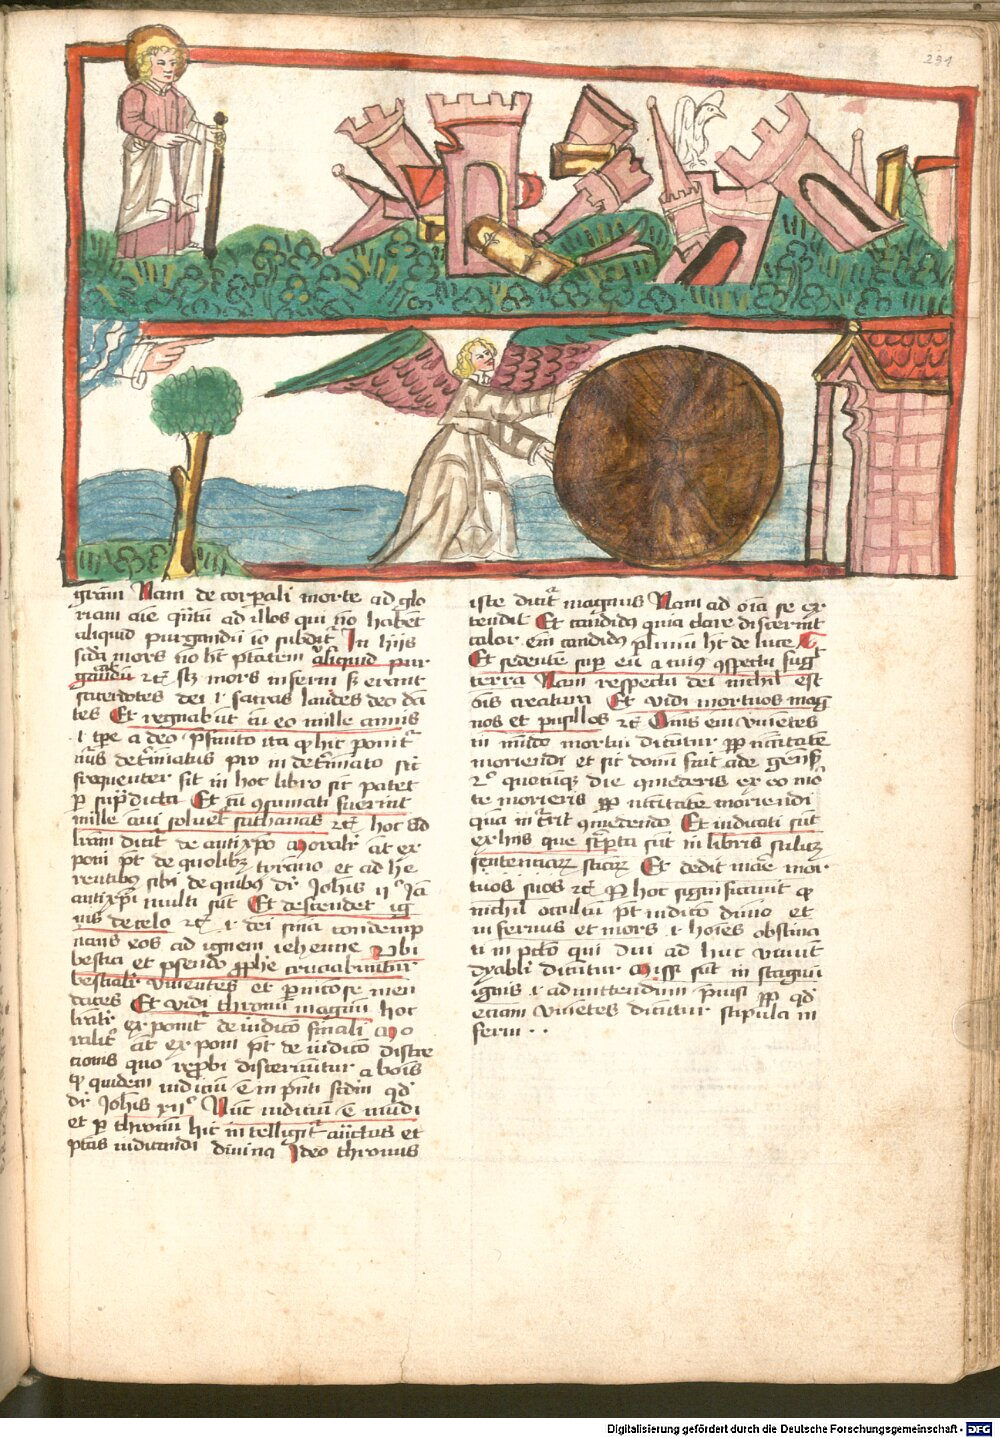 291
gram Nam de corp̄ali morte ad glo
riam aīe qn̄tū ad illos qui nō habēt
aliquid purgandū iō subdit̄ In hiis
sc̄da mors nō hꝫ ptatem aliquid pur
gandū ⁊cꝫ sꝫ mors inferni sꝫ erunt
sacerdotes dei .i. sacras laudes deo dā
tes Et regnabūt cū eo mille annis
determinatus pro indeterminato sic
frequenter fit in hoc libro sic patet
ꝑ sup̄dicta Et cū ꝯsumati fuerint
mille anni soluet̄ sathanas ⁊cꝫ hoc ad
lr̄am dicit̄ de antixp̄o Moralr̄ āt ex
poni pt̄ de quolibꝫ tyranno et ad he
rentibꝰ sibi de quibꝰ dr̄ Johīs ijº Jā
antixp̄i multi sūt Et descendet ig
nis de celo ⁊cꝫ .i. dei sn̄ia condemp
nans eos ad ignem iehenne Vbi
bestia et pseudo ꝓphe cruciabuntur
bestialr̄ viuentes et ꝑniciose men
dātes Et vidi thronū magnū hoc
lr̄alr̄ exponit̄ de iudicō finali Mo
ralit̄ āt exponi pt̄ de iudicō discre
tionis quo reꝓbi discernūtur a bonis
qꝫ quidem iudiciū ē in pn̄ti scd̄m qd̄
dr̄ Johīs xijº Nūc iudiciū ē mūdi
et ꝑ thronū hic intelligit̄ auctus et
ptās iudicandi diuina Jdeo thronus
iste dicit̄ magnus Nam ad oīa se ex
tendit Et candidꝰ quia clare discernit
calor em̄ candidꝰ plurimū hꝫ de luce
Et sedentē sup eū a cuiꝰ ꝯspectu fugit
terra Nam respectu dei nichil est
oīs creatura Et vidi mortuos mag
nos et pusillos ⁊cꝫ Oīnes em̄ viuētes
in mūdo mortui dicūtur ꝓp̄ nc̄citatē
moriendi et sic dōm̄ fuit ade gen̄s
2º quotūqꝫ die comederis ex eo mo
te morieris ꝓp̄ nc̄citatē moriendi
quā incurrit comedendo Et iudicati sūt
ex hiis que sc̄pta sūt in libris
sententiarꝫ Et dedit mare mor
tuos suos ⁊cꝫ Ꝑ hoc significatur qꝫ
nichil occultū pt̄ iudicō diuino et
infernus et mors .i. hoīes obstina
ti in pctō qui dui ad huc viuūt
dyaboli dicūtur Missi sūt in stagnū
ignis .i. ad mittendum
etiam viuētes dicūtur stipula in
ferni . .
Digitalisierung gefördert durch die Deutsche Forschungsgemeinschaft - DFG